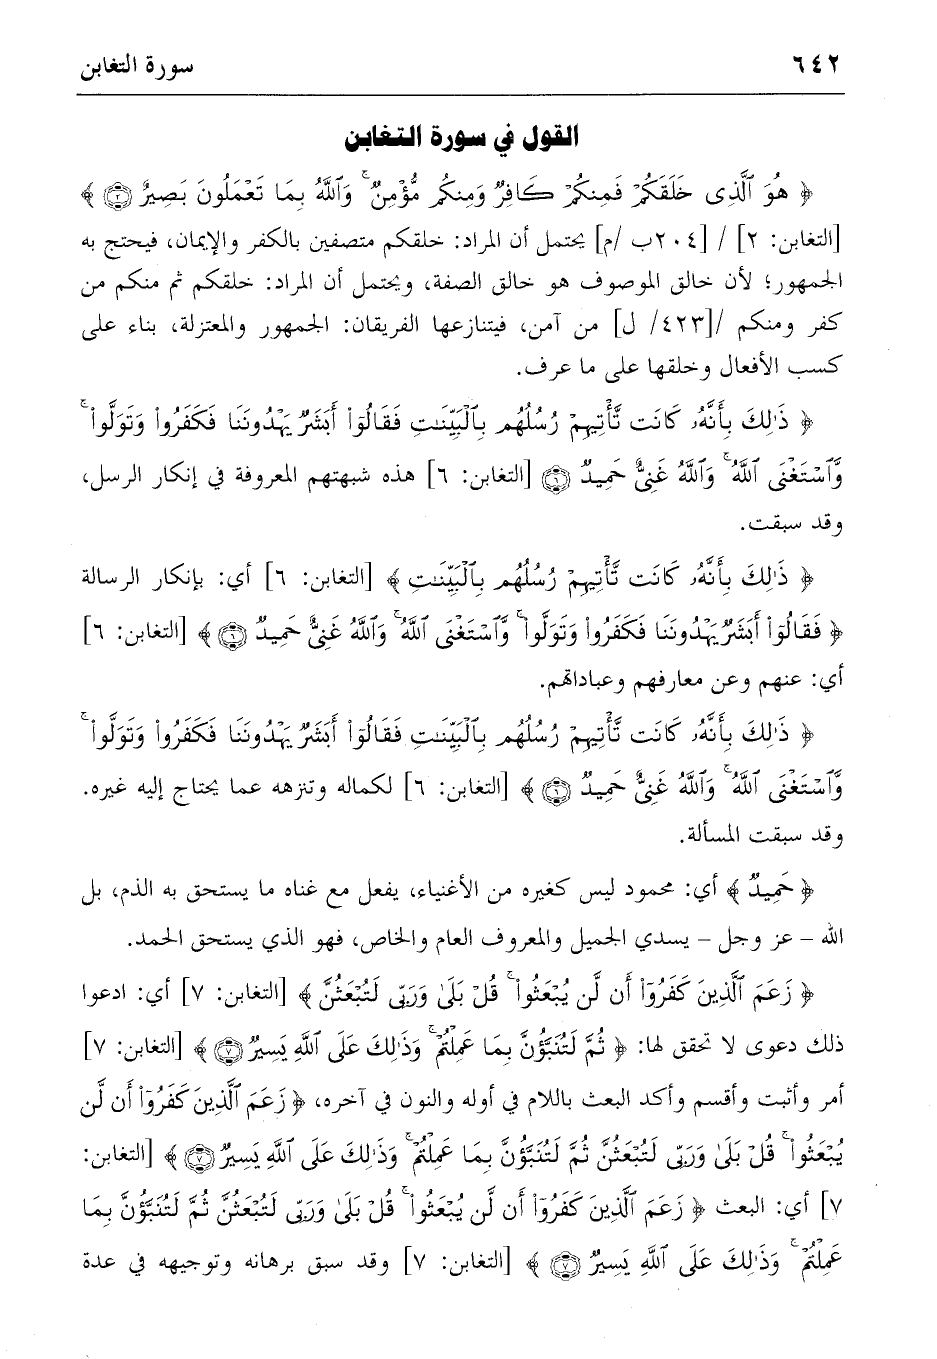 ٦٤٢ سورة التغابن
القول في سورة التغابن
﴿ هُوَ ٱلَّذِى خَلَقَكُمْ فَمِنكُمْ كَافِرٌ وَمِنكُم مُّؤْمِنٌ ۚ وَٱللَّهُ بِمَا تَعْمَلُونَ بَصِيرٌ ۝٢ ﴾
[التغابن: ٢] / [٢٠٤ب /م] يحتمل أن المراد: خلقكم متصفين بالكفر والإيمان، فيحتج به
الجمهور؛ لأن خالق الموصوف هو خالق الصفة، ويحتمل أن المراد: خلقكم ثم منكم من
كفر ومنكم /[٤٢٣/ ل] من آمن، فيتنازعها الفريقان: الجمهور والمعتزلة، بناء على
كسب الأفعال وخلقها على ما عرف.
﴿ ذَٰلِكَ بِأَنَّهُۥ كَانَت تَّأْتِيهِمْ رُسُلُهُم بِٱلْبَيِّنَـٰتِ فَقَالُوٓا۟ أَبَشَرٌ يَهْدُونَنَا فَكَفَرُوا۟ وَتَوَلَّوا۟ ۚ
وَّٱسْتَغْنَى ٱللَّهُ ۚ وَٱللَّهُ غَنِىٌّ حَمِيدٌ ۝٦ [التغابن: ٦] هذه شبهتهم المعروفة في إنكار الرسل،
وقد سبقت.
﴿ ذَٰلِكَ بِأَنَّهُۥ كَانَت تَّأْتِيهِمْ رُسُلُهُم بِٱلْبَيِّنَـٰتِ ﴾ [التغابن: ٦] أي: بإنكار الرسالة
﴿ فَقَالُوٓا۟ أَبَشَرٌ يَهْدُونَنَا فَكَفَرُوا۟ وَتَوَلَّوا۟ ۚ وَّٱسْتَغْنَى ٱللَّهُ ۚ وَٱللَّهُ غَنِىٌّ حَمِيدٌ ۝٦ ﴾ [التغابن: ٦]
أي: عنهم وعن معارفهم وعباداتهم.
﴿ ذَٰلِكَ بِأَنَّهُۥ كَانَت تَّأْتِيهِمْ رُسُلُهُم بِٱلْبَيِّنَـٰتِ فَقَالُوٓا۟ أَبَشَرٌ يَهْدُونَنَا فَكَفَرُوا۟ وَتَوَلَّوا۟ ۚ
وَّٱسْتَغْنَى ٱللَّهُ ۚ وَٱللَّهُ غَنِىٌّ حَمِيدٌ ۝٦ ﴾ [التغابن: ٦] لكماله وتنزهه عما يحتاج إليه غيره.
وقد سبقت المسألة.
﴿ حَمِيدٌ ﴾ أي: محمود ليس كغيره من الأغنياء، يفعل مع غناه ما يستحق به الذم، بل
الله – عز وجل – يسدي الجميل والمعروف العام والخاص، فهو الذي يستحق الحمد.
﴿ زَعَمَ ٱلَّذِينَ كَفَرُوٓا۟ أَن لَّن يُبْعَثُوا۟ ۚ قُلْ بَلَىٰ وَرَبِّى لَتُبْعَثُنَّ ﴾ [التغابن: ٧] أي: ادعوا
ذلك دعوى لا تحقق لها: ﴿ ثُمَّ لَتُنَبَّؤُنَّ بِمَا عَمِلْتُمْ ۚ وَذَٰلِكَ عَلَى ٱللَّهِ يَسِيرٌ ۝٧ ﴾ [التغابن: ٧]
أمر وأثبت وأقسم وأكد البعث باللام في أوله والنون في آخره، ﴿ زَعَمَ ٱلَّذِينَ كَفَرُوٓا۟ أَن لَّن
يُبْعَثُوا۟ ۚ قُلْ بَلَىٰ وَرَبِّى لَتُبْعَثُنَّ ثُمَّ لَتُنَبَّؤُنَّ بِمَا عَمِلْتُمْ ۚ وَذَٰلِكَ عَلَى ٱللَّهِ يَسِيرٌ ۝٧ ﴾ [التغابن:
٧] أي: البعث ﴿ زَعَمَ ٱلَّذِينَ كَفَرُوٓا۟ أَن لَّن يُبْعَثُوا۟ ۚ قُلْ بَلَىٰ وَرَبِّى لَتُبْعَثُنَّ ثُمَّ لَتُنَبَّؤُنَّ بِمَا
عَمِلْتُمْ ۚ وَذَٰلِكَ عَلَى ٱللَّهِ يَسِيرٌ ۝٧ ﴾ [التغابن: ٧] وقد سبق برهانه وتوجيهه في عدة